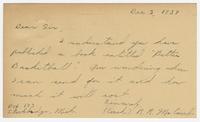 Dec 3, 1939
Dear Sir,
I understand you have
published a book entitled "Better
Basketball". Am wondering where
I can send for it and how
much it will cost.
Sincerely
Box 173
(Coach) R. R.
Mich.